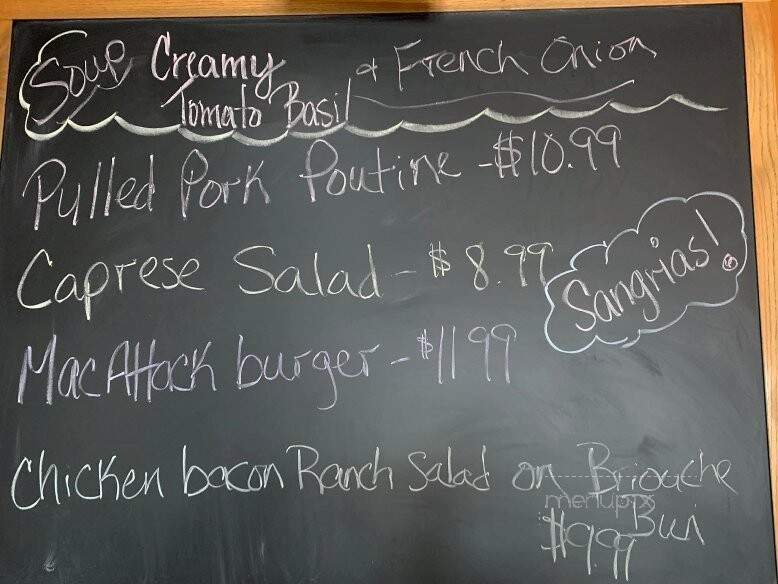 Soup Creamy & French Onion
Tomato Basil
Pulled Pork Poutine - $10.99
Caprese Salad - $8.99
Sangrias!
Mac Attack burger - $11.99
Chicken bacon Ranch Salad on Briouche
menupix
Bun
$9.99